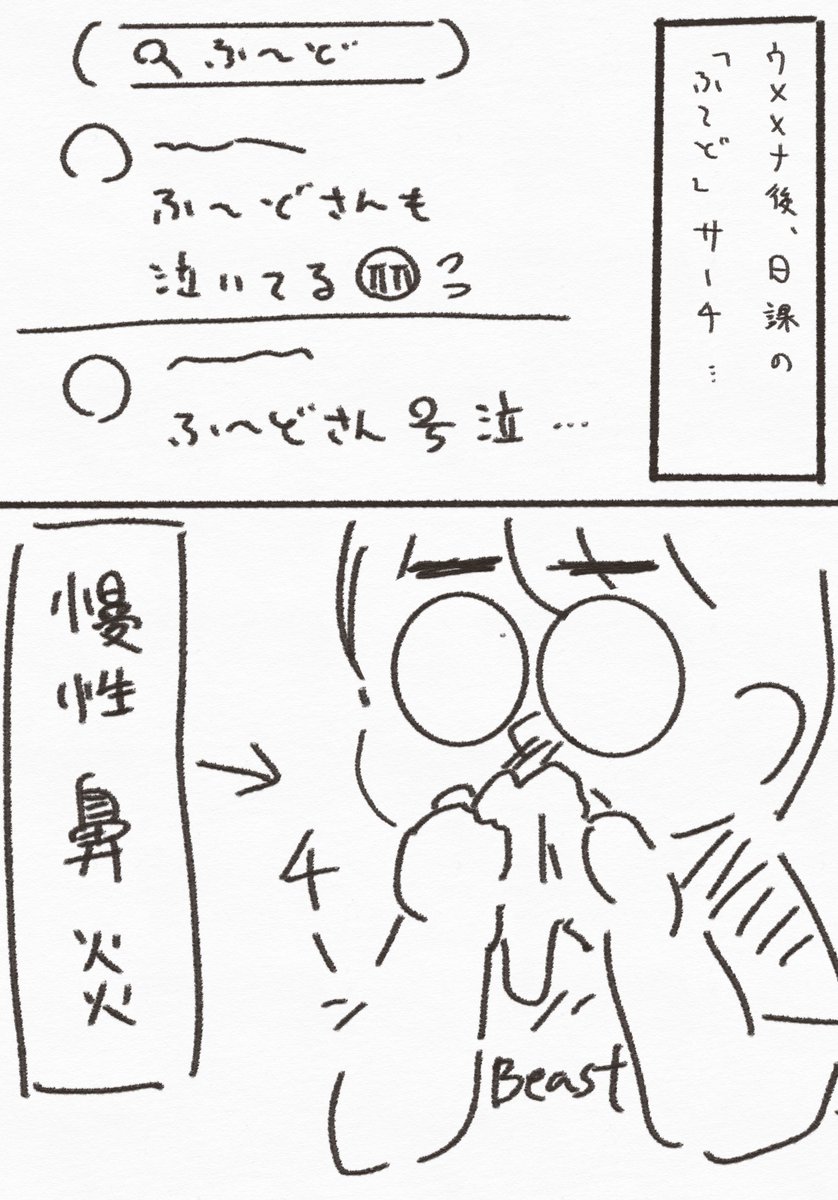 ウメメナ後、日課の
「ふ〜ど」サーチ…
ふ〜ど
ふ〜どさんも
泣いてる
ふ〜どさん号泣…
慢性鼻炎
チーン
Beast